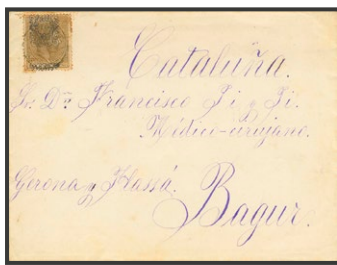 Cataluña.
Sr. Dn. Francisco Pi y Pi.
Médici-cirujano.
Gerona y Flassá.
Bagur.